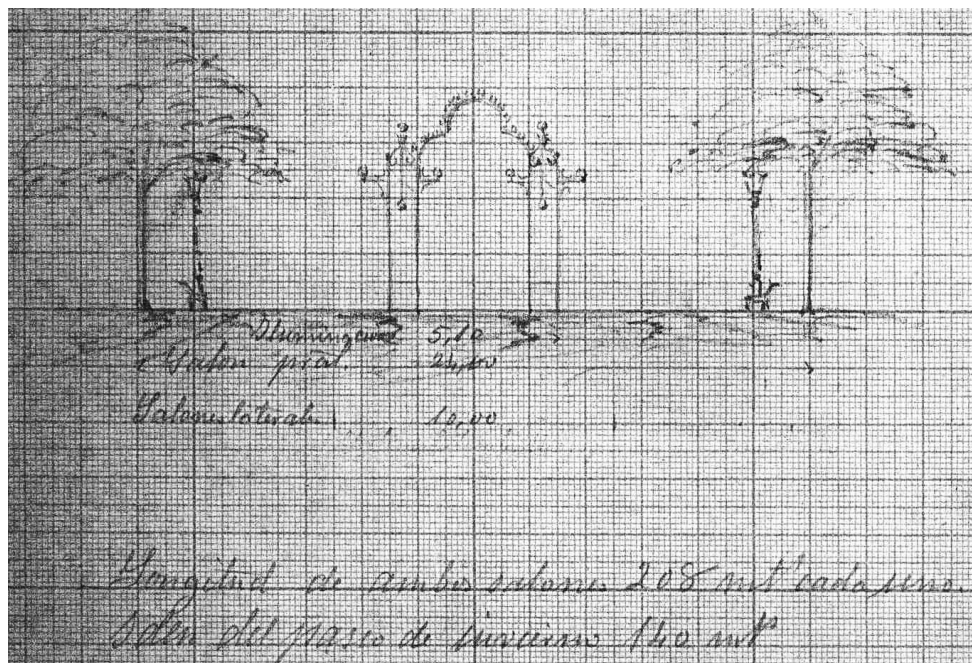 5,10
Salon pral. 24,00
Salones laterales 10,00
Longitud de ambos salones 208 mtˢ cada uno.
Iden del paseo de invierno 140 mtˢ